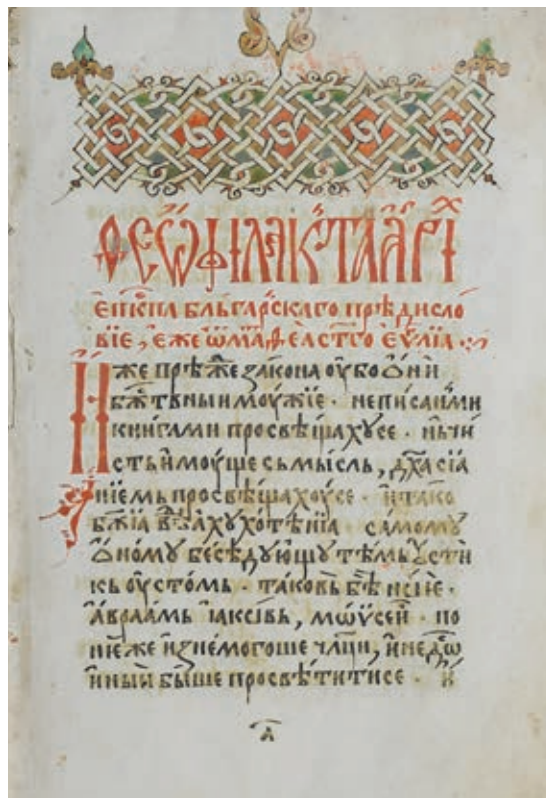 Ѳеѡфилакта арⷯі
епⷭ҇кпа бльгарскаго прѣдисло
вїе, еже ѿ маѳеа ст҃го еѵ҃лїа
Иже прѣжⷣе закона оубо ѡни
бжⷭ҇твныи моужїе · неписанми
книгами просвѣщахусе · нь чи
сть имоуще сьмысль, дх҃а сїа
нїемь просвѣщахоусе · и тако
бж҃їа хотѣнїа самому
ѡному бесѣдующу тѣмь ѹсти
кь оустомь · таковь бѣ нѡе ·
авраамь іакѡвь, мѡѵсеи · по
нѥже изнемогоше чл҃ци, и недⷭ҇ѡ
ины быше просвѣтитисе · и
а҃